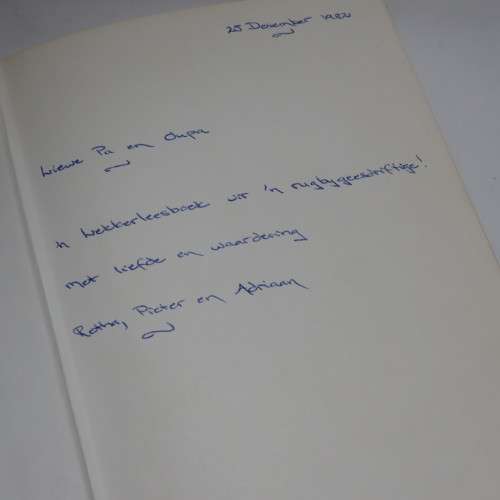 25 Desember 1982
Liewe Pa en Oupa
'n Lekkerleesboek vir 'n rugbygeesdriftige!
met liefde en waardering
Pieter en Adriaan